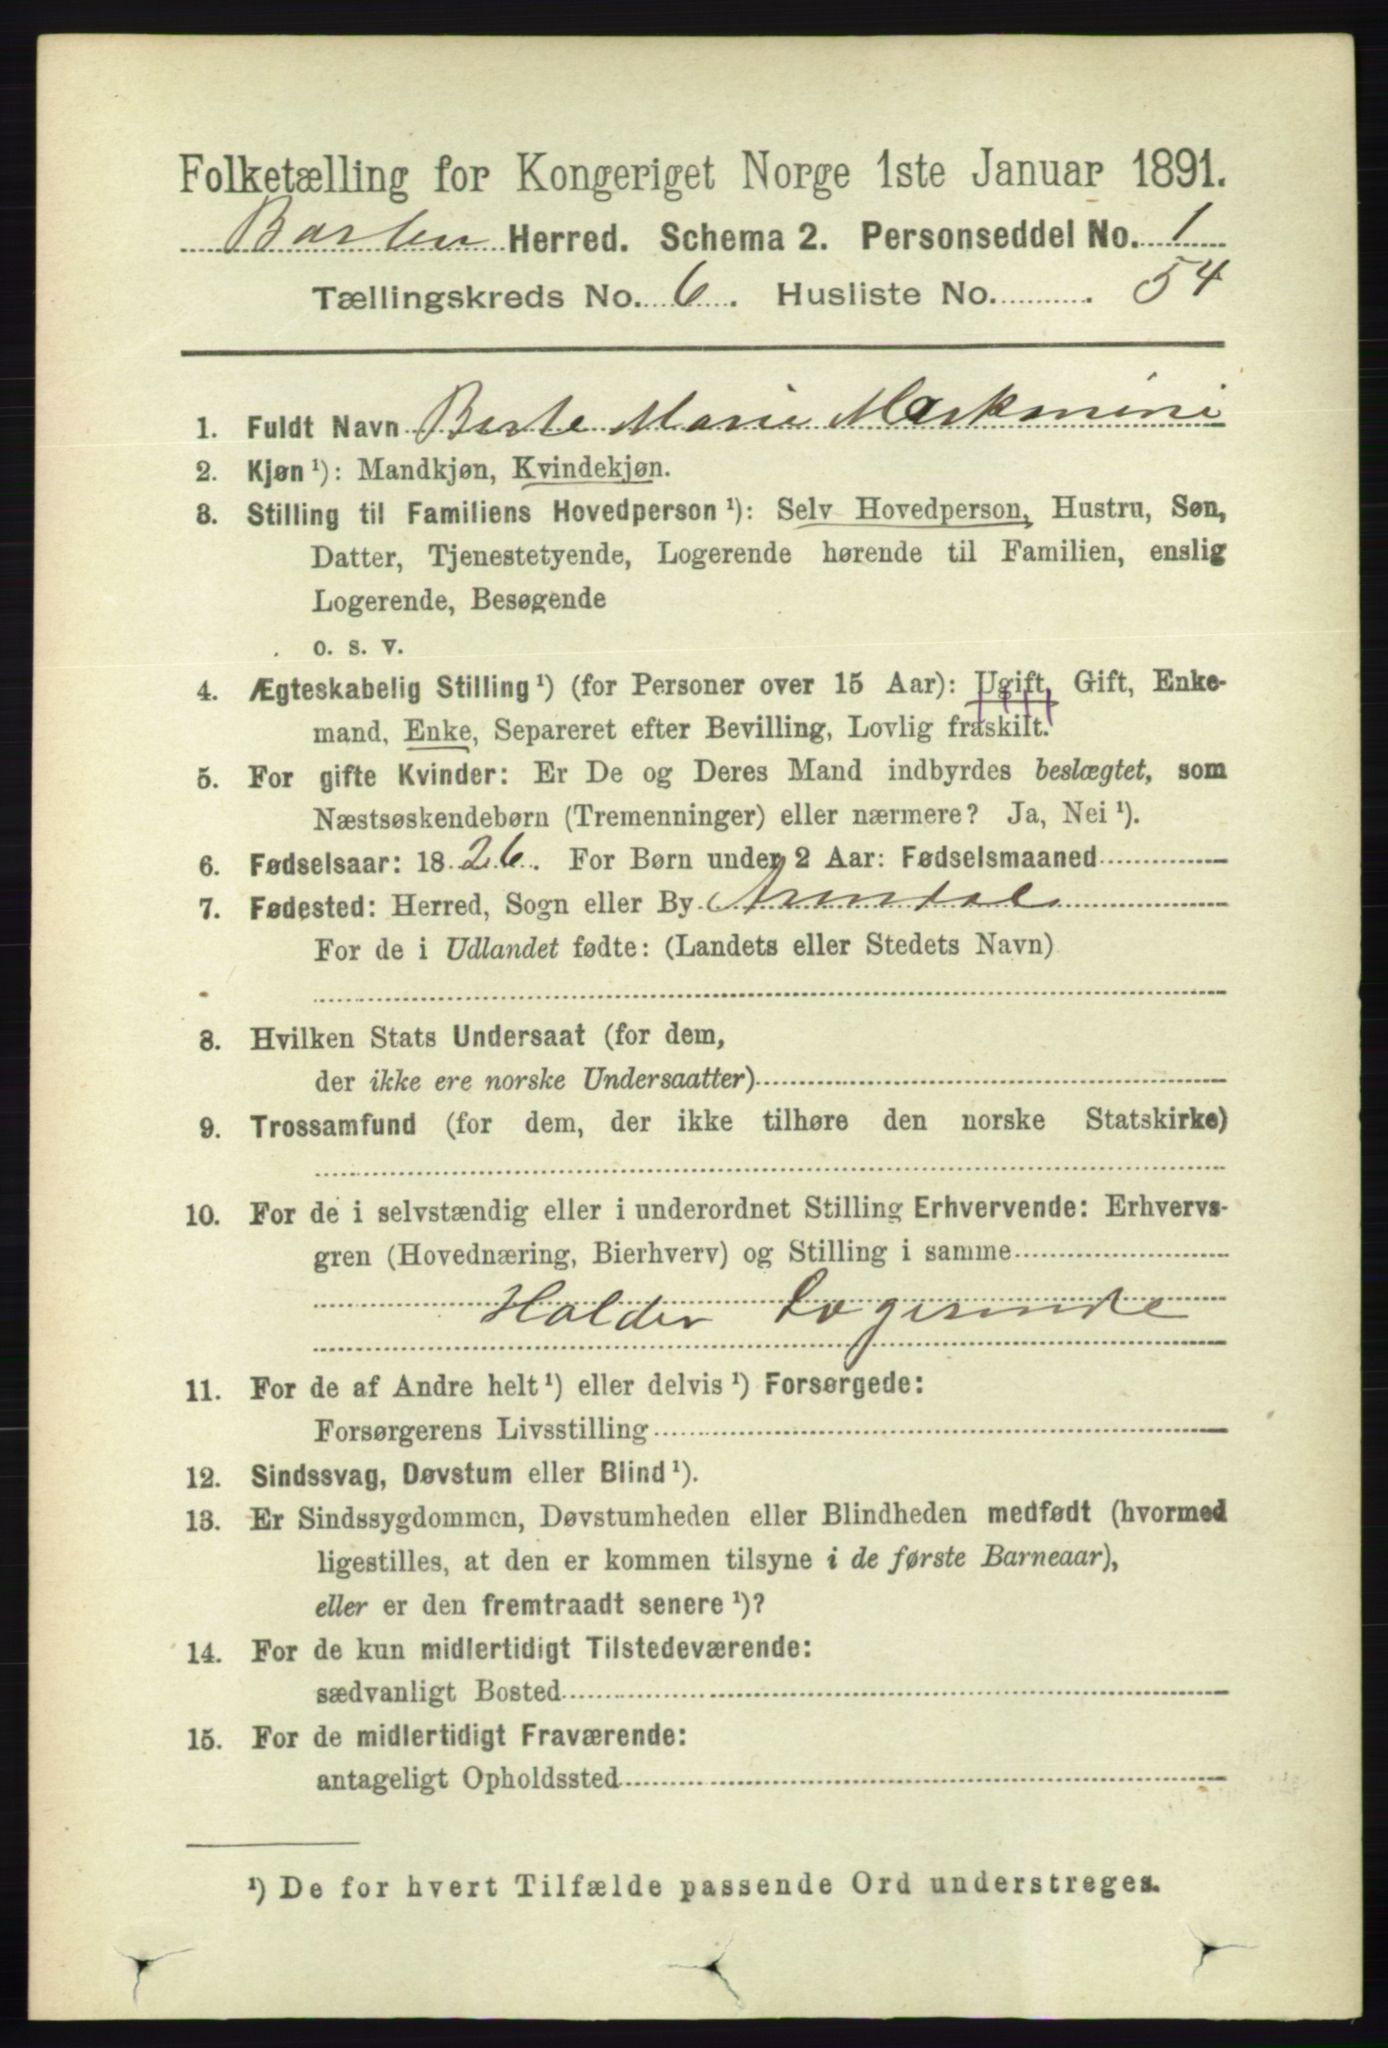 Folketælling for Kongeriget Norge 1ste Januar 1891.
Barbu Herred. Schema 2. Personseddel No. 1
Tællingskreds No. 6. Husliste No. 54
1. Fuldt Navn Berte Marie
2. Kjøn ¹): Mandkjøn, Kvindekjøn.
3. Stilling til Familiens Hovedperson ¹): Selv Hovedperson, Hustru, Søn,
Datter, Tjenestetyende, Logerende hørende til Familien, enslig
Logerende, Besøgende
o. s. v.
4. Ægteskabelig Stilling ¹) (for Personer over 15 Aar): Ugift, Gift, Enke-
mand, Enke, Separeret efter Bevilling, Lovlig fraskilt.
5. For gifte Kvinder: Er De og Deres Mand indbyrdes beslægtet, som
Næstsøskendebørn (Tremenninger) eller nærmere? Ja, Nei ¹).
6. Fødselsaar: 1826. For Børn under 2 Aar: Fødselsmaaned
7. Fødested: Herred, Sogn eller By Arendal
For de i Udlandet fødte: (Landets eller Stedets Navn)
8. Hvilken Stats Undersaat (for dem,
der ikke ere norske Undersaatter)
9. Trossamfund (for dem, der ikke tilhøre den norske Statskirke)
10. For de i selvstændig eller i underordnet Stilling Erhvervende: Erhvervs-
gren (Hovednæring, Bierhverv) og Stilling i samme
Holder Logerende
11. For de af Andre helt ¹) eller delvis ¹) Forsørgede:
Forsørgerens Livsstilling
12. Sindssvag, Døvstum eller Blind ¹).
13. Er Sindssygdommen, Døvstumheden eller Blindheden medfødt (hvormed
ligestilles, at den er kommen tilsyne i de første Barneaar),
eller er den fremtraadt senere ¹)?
14. For de kun midlertidigt Tilstedeværende:
sædvanligt Bosted
15. For de midlertidigt Fraværende:
antageligt Opholdssted
¹) De for hvert Tilfælde passende Ord understreges.